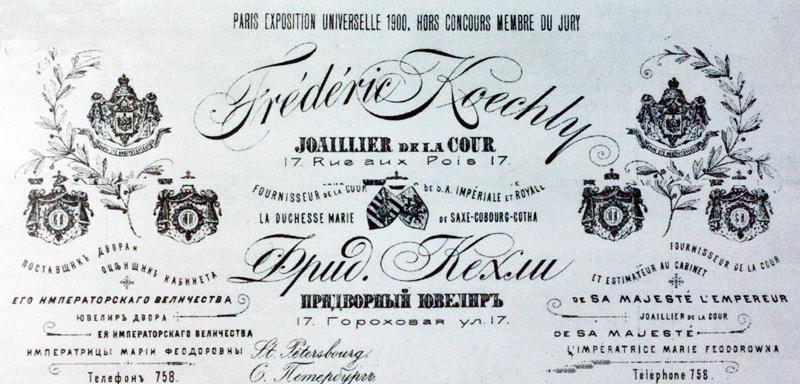 PARIS EXPOSITION UNIVERSELLE 1900, HORS CONCOURS MEMBRE DU JURY
Frédéric Koechly
JOAILLIER DE LA COUR
17. Rue aux Pois 17.
FOURNISSEUR DE LA COUR DE S.A. IMPÉRIALE ET ROYALE
LA DUCHESSE MARIE DE SAXE-COBOURG-GOTHA
Фрид. Кехли
ПРИДВОРНЫЙ ЮВЕЛИРЪ
17. Гороховая ул. 17.
St. Petersbourg.
С. Петербургъ
ПОСТАВЩИКЪ ДВОРА И
ОЦѢНЩИКЪ КАБИНЕТА
ЕГО ИМПЕРАТОРСКАГО ВЕЛИЧЕСТВА
ЮВЕЛИРЪ ДВОРА
ЕЯ ИМПЕРАТОРСКАГО ВЕЛИЧЕСТВА
ИМПЕРАТРИЦЫ МАРІИ ФЕОДОРОВНЫ
Телефонъ 758.
FOURNISSEUR DE LA COUR
ET ESTIMATEUR AU CABINET
DE SA MAJESTÉ L'EMPEREUR
JOAILLIER DE LA COUR
DE SA MAJESTÉ
L'IMPÉRATRICE MARIE FEODOROWNA
Téléphone 758.